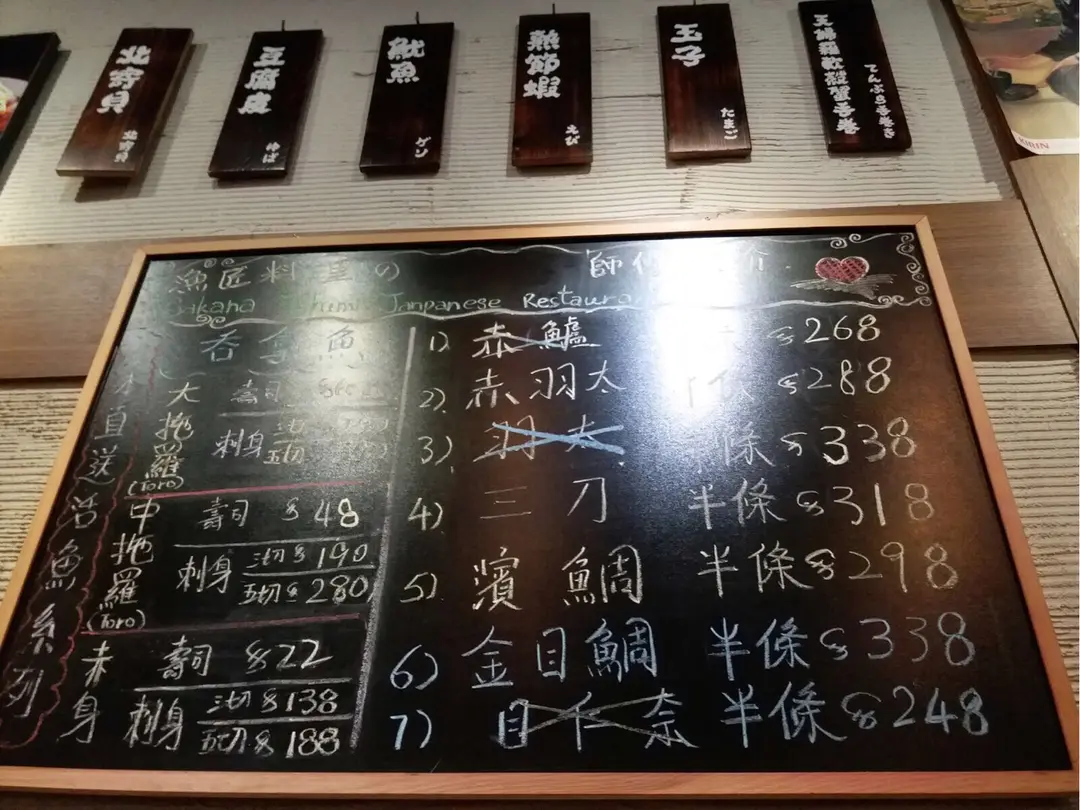 北寄貝
豆腐皮
ゆば
魷魚
ゲソ
熟節蝦
えび
玉子
たまご
天婦羅軟殼蟹手卷
てんぷら手巻き
KIRIN
漁匠料理の 師
Sakana Janpanese Restaura
吞拿魚
直送活魚系列
大拖羅(Toro)
壽司
刺身
五切
中拖羅(Toro)
壽司 $48
刺身 三切 $190
五切 $280
赤身
壽司 $22
刺身 三切 $138
五切 $188
1) 赤鱸 $268
2) 赤羽太 條 $288
3) 羽太 條 $338
4) 三刀 半條 $318
5) 濱鯛 半條 $298
6) 金目鯛 半條 $338
7) 目仁奈 半條 $248